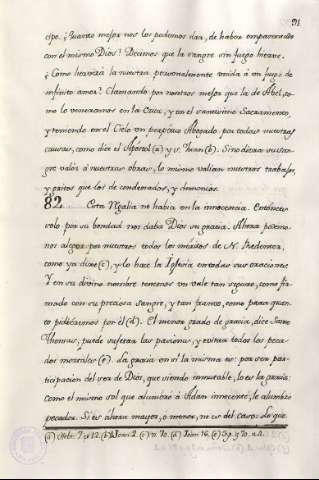 91
cipe. ¿Cuanto mejor nos los podemos dar, de haber emparentado
con el mismo Dios? Decimos que la sangre sin fuego hierve.
¿Como herviria la nuestra personalmente unida á un fuego de
infinito amor? Clamando por nosotros mejor que la de Abel, co-
mo lo veneramos en la Cruz, y en el santisimo Sacramento,
y teniendo en el Cielo un perpetuo Abogado, por todas nuestras
causas, como dice el Apóstol (a) y S. Juan (b). Si no diera su san-
gre valor á nuestras obras, lo mismo valian nuestros trabajos,
y gritos que los de condenados, y demonios.
82 Esta Regalia no habia en la inocencia. Entónces
solo por su bondad nos daba Dios su gracia. Ahora podemo-
nos alegar por nuestros todos los méritos de N. Redentor,
como ya dixe (c), y lo hace la Iglesia en todas sus oraciones.
Y en su divino nombre tenemos un vale tan seguro, como fir-
mado con su preciosa sangre, y tan franco, como para quan-
to pidiéremos por él (d). El menor grado de gracia, dice Santo
Thomas, puede sujetar las pasiones, y evitar todos los peca-
dos mortales (e). La gracia en sí la misma es: por ser par-
ticipacion del ser de Dios, que siendo inmutable, lo es la gracia:
como el mismo sol que alumbró á Adan inocente, le alumbró
pecador. Si es ahora mayor, o menor, no es del caso. Lo que
(a) Hebr. 7. v. 12. (b) Joan. 2. (c) n. 70. (d) Joan. 16. (e) 3. p. q. 70. a. 4.